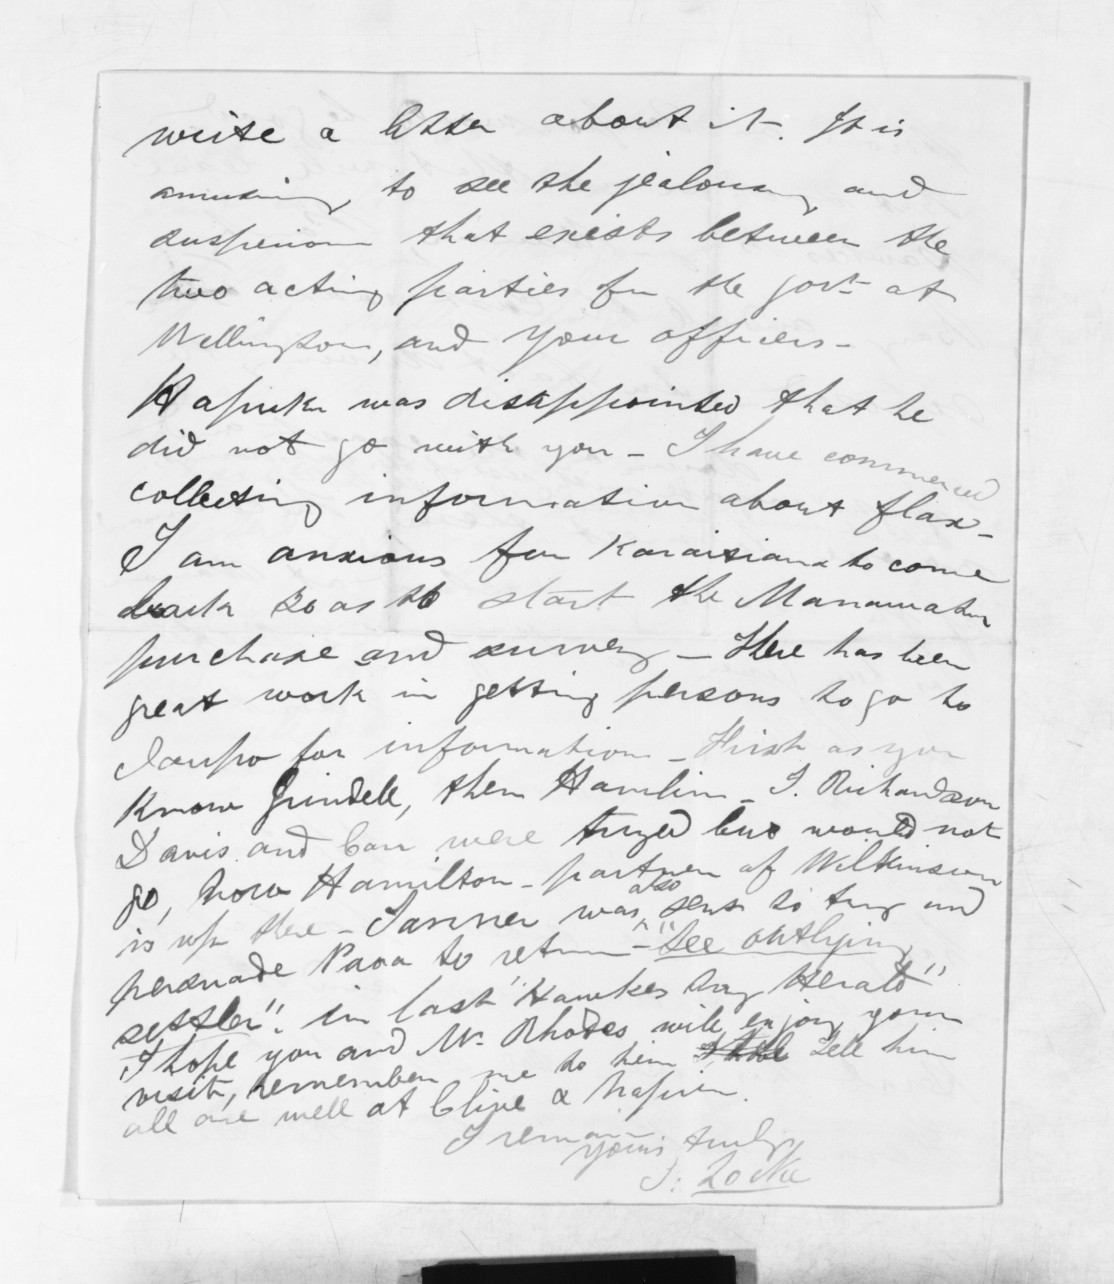 write a letter about it. It is
amusing, to see the jealousy and
suspicion that exists between the
two acting parties for the Govt at
Wellington, and your officers -
Hapuku was disappointed that he
did not go with you - I have commenced
collecting information about flax -
I am anxious for Karaitiana to come
back so as to start the Manawatu
purchase and survey - There has been
great work in getting persons to go to
Taupo for information - First as you
know Grindell, then Hamlin - T. Richardson
Davis and Carr were tryed but would not
go, now Hamilton - partner of Wilkinson
is up there - Tanner was also sent to try and
persuade Paoa to return - "See outlying
settler". in last "Hawkes Bay Herald"
I hope you and Mr. Rhodes will enjoy your
visit, remember me to him tell him
all are well at Clive & Napier.
I remain
yours truly
S. Locke